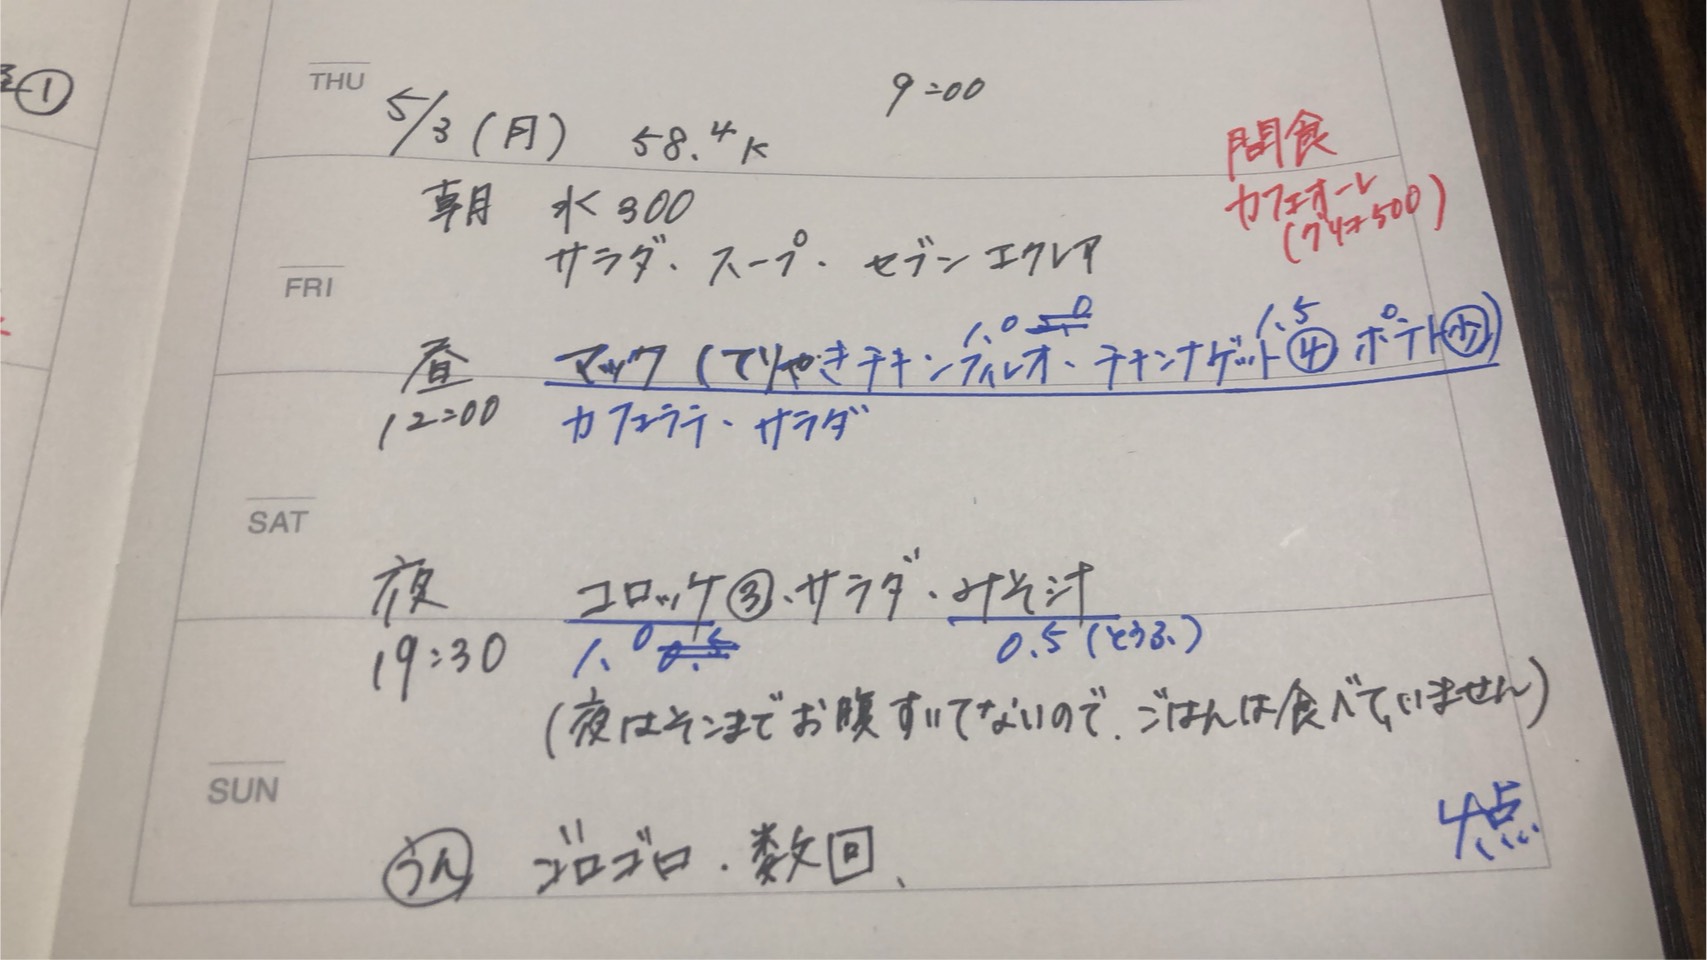 ①
THU
9:00
5/3(月) 58.4K
間食
朝 水300
カフェオーレ
(グリコ500)
サラダ・スープ・セブンエクレア
FRI
1.0 1.5
昼 マック(てりやきチキンフィレオ・チキンナゲット④ ポテト少)
12:00 カフェラテ・サラダ
SAT
夜 コロッケ③、サラダ・みそ汁
19:30 1.0 0.5 0.5(とうふ)
(夜はそこまでお腹すいてないので、ごはんは食べていません)
SUN
4点
うん ゴロゴロ・数回、